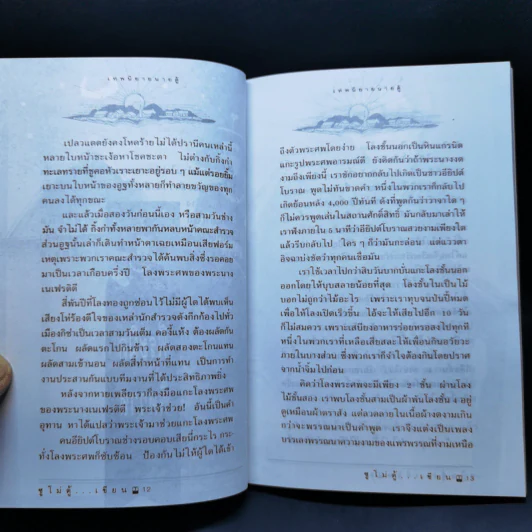 เทพนิยายนายอู๋
เปลวแดดยังคงโหดร้ายไม่ได้ปรานีคนเหล่านี้
หลายใบหน้าชะเง้อหาโชคชะตา ไม่ต่างกับกิ้งก่า
ทะเลทรายที่ชูคอหัวเราะเยาะอยู่รอบ ๆ แม้แต่รอยยิ้ม
เยาะบนใบหน้าของอูฐทั้งหลายก็ทำลายขวัญของทุก
คนลงได้ทุกขณะ
และแล้วเมื่อสองวันก่อนนี้เอง หรือสามวันช่าง
มัน จำไม่ได้ กิ้งก่าทั้งหลายพากันหลบหน้าคณะสำรวจ
ส่วนอูฐนั้นเล่าก็เดินทำหน้าตาเฉยเหมือนเสียฟอร์ม
เหตุเพราะพวกเราคณะสำรวจ ได้ค้นพบสิ่งซึ่งรอคอย
มาเป็นเวลาเกือบครึ่งปี โลงพระศพของพระนาง
เนเฟรติตี
สี่พันปีที่โลงทองถูกซ่อนไว้ไม่มีผู้ใดได้พบเห็น
เสียงโห่ร้องดีใจของเหล่านักสำรวจดังกึกก้องไปทั่ว
เมืองกีซ่าเป็นเวลาสามวันเต็ม คองี้แห้ง ต้องผลัดกัน
ตะโกน ผลัดแรกไปกินข้าว ผลัดสองตะโกนแทน
ผลัดสามเข้านอน ผลัดสี่ทำหน้าที่แทน เป็นการทำ
งานประสานกันแบบทีมงานที่ได้ประสิทธิภาพยิ่ง
หลังจากหายเพลียเราก็ลงมือแกะโลงพระศพ
ของพระนางเนเฟรติตี พระเจ้าช่วย! อันนี้เป็นคำ
อุทาน หาได้แปลว่าพระเจ้ามาช่วยแกะโลงพระศพ
คนอียิปต์โบราณช่างรอบคอบเสียนี่กระไร กระ
ทั่งโลงพระศพก็ซับซ้อน ป้องกันไม่ให้ผู้ใดได้เข้า
ชูโม่ตู้...เขียน 12
เทพนิยายนายอู๋
ถึงตัวพระศพโดยง่าย โลงชั้นนอกเป็นหินแกรนิต
แกะรูปพระศพอารมณ์ดี ยังคิดกันว่าถ้าพระนางงด
งามถึงเพียงนี้ เราชักอยากกลับไปเกิดเป็นชาวอียิปต์
โบราณ พูดไม่ทันขาดคำ หนึ่งในพวกเราก็กลับไป
เกิดย้อนหลัง 4,000 ปีทันที ดังที่พูดกันว่าวาจาใด ๆ
ก็ไม่ควรพูดเล่นในสถานศักดิ์สิทธิ์ มันกลับมาเล่าให้
เราฟังภายใน 5 นาทีว่าอียิปต์โบราณสวยงามเพียงใด
แล้วรีบกลับไป ใคร ๆ ก็ว่ามันกะล่อน แต่แววตา
อิจฉาบ่งชัดว่าทุกคนเชื่อมัน
เราใช้เวลาไปกว่าสิบวันบากบั่นแกะโลงชั้นนอก
ออกโดยให้บุบสลายน้อยที่สุด โลงชั้นในเป็นไม้
บอกไม่ถูกว่าไม้อะไร เพราะเราทุบจนป่นปี้หมด
เพื่อให้โลงเปิดเร็วขึ้น ไอ้จะให้เสียไปอีก 10 วัน
ก็ไม่สมควร เพราะเสบียงอาหารร่อยหรอลงไปทุกที
หนึ่งในพวกเราที่เหลือเสียสละไว้เพื่อนกินอวัยวะ
ภายในบางส่วน ซึ่งพวกเราก็จำใจต้องกินโดยปราศ
จากน้ำจิ้มไปก่อน
คิดว่าโลงพระศพจะมีเพียง 2 ชั้น ผ่านโลง
ไม้ชั้นสอง เราพบโลงชั้นสามเป็นผ้าพันโลงชั้น 4 อยู่
ดูเหมือนผ้าตราสัง แต่ลวดลายในเนื้อผ้างดงามเกิน
กว่าจะพรรณนาเป็นคำพูด เราจึงแต่งเป็นเพลง
ชูโม่ตู้...เขียน 13